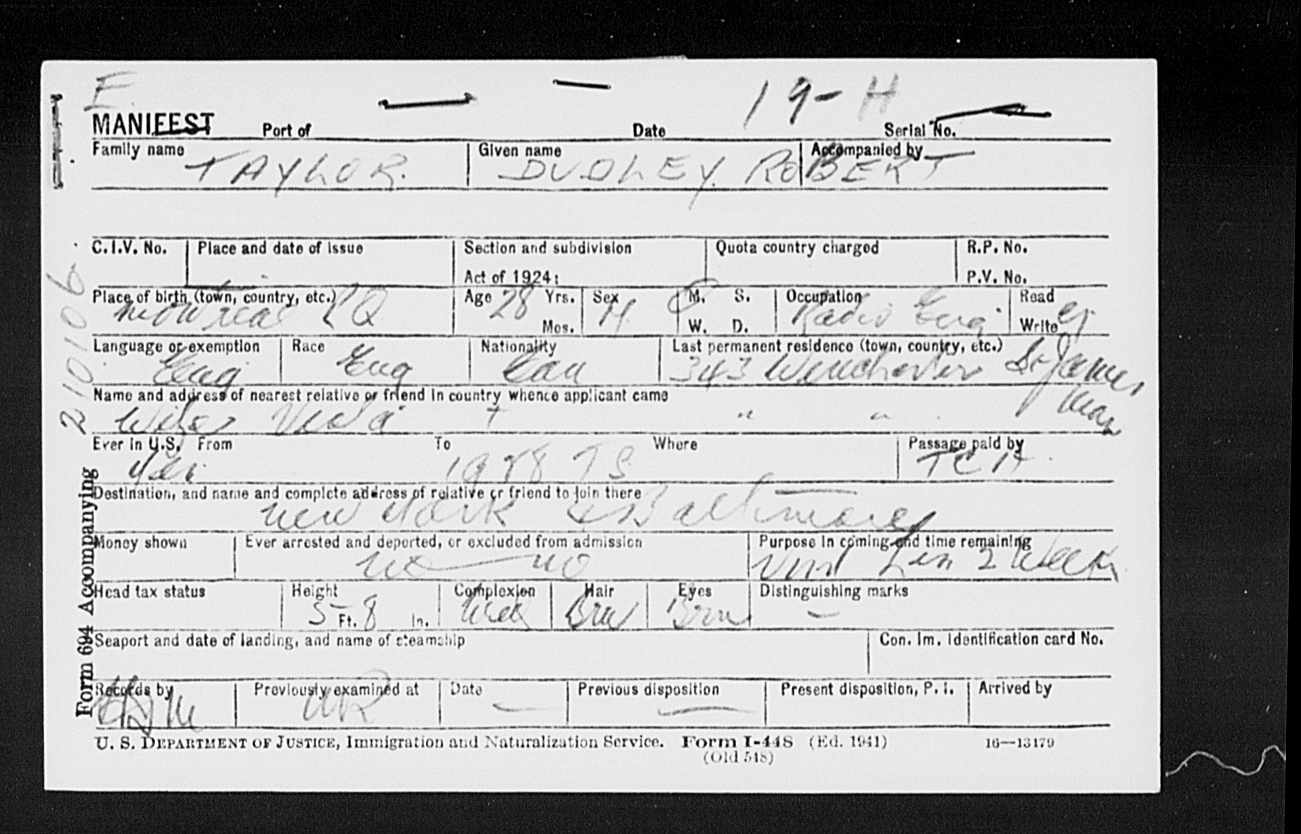 E.
19-H
MANIFEST Port of Date Serial No.
Family name Given name Accompanied by
TAYLOR. DUDLEY. ROBERT
C.I.V. No. Place and date of issue Section and subdivision Quota country charged R.P. No.
Act of 1924: P.V. No.
Place of birth (town, country, etc.) Age Yrs. Sex M. S. Occupation Read
Montreal PQ 28 M Radio Eng
Mos. W. D. Write
Language or exemption Race Nationality Last permanent residence (town, country, etc.)
Eng Eng Can 343 Winchester St James
Man
Name and address of nearest relative or friend in country whence applicant came
Wife " "
Ever in U.S. From To Where Passage paid by
Yes 1938
Destination, and name and complete address of relative or friend to join there
New York & Baltimore
Money shown Ever arrested and deported, or excluded from admission Purpose in coming and time remaining
no — no Visit 2 Weeks
Head tax status Height Complexion Hair Eyes Distinguishing marks
5 Ft. 8 In. Med Brn Brn –
Seaport and date of landing, and name of steamship Con. Im. Identification card No.
Records by Previously examined at Date Previous disposition Present disposition, P. I. Arrived by
U. S. DEPARTMENT OF JUSTICE, Immigration and Naturalization Service. Form I-448 (Ed. 1941) 16—13179
(Old 548)
Form 694 Accompanying
210106